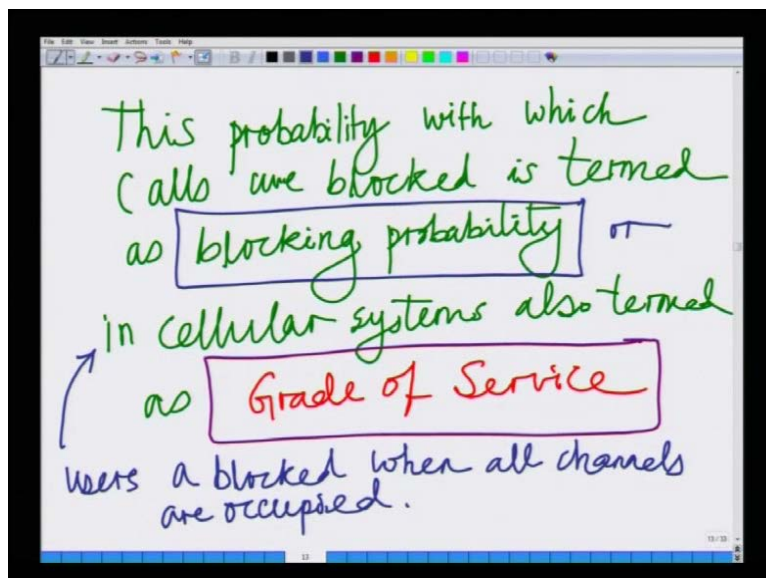 File Edit View Insert Actions Tools Help
B I
This probability with which
Calls are blocked is termed
as blocking probability or
in cellular systems also termed
as Grade of Service
users a blocked when all channels
are occupied.
13/33
13